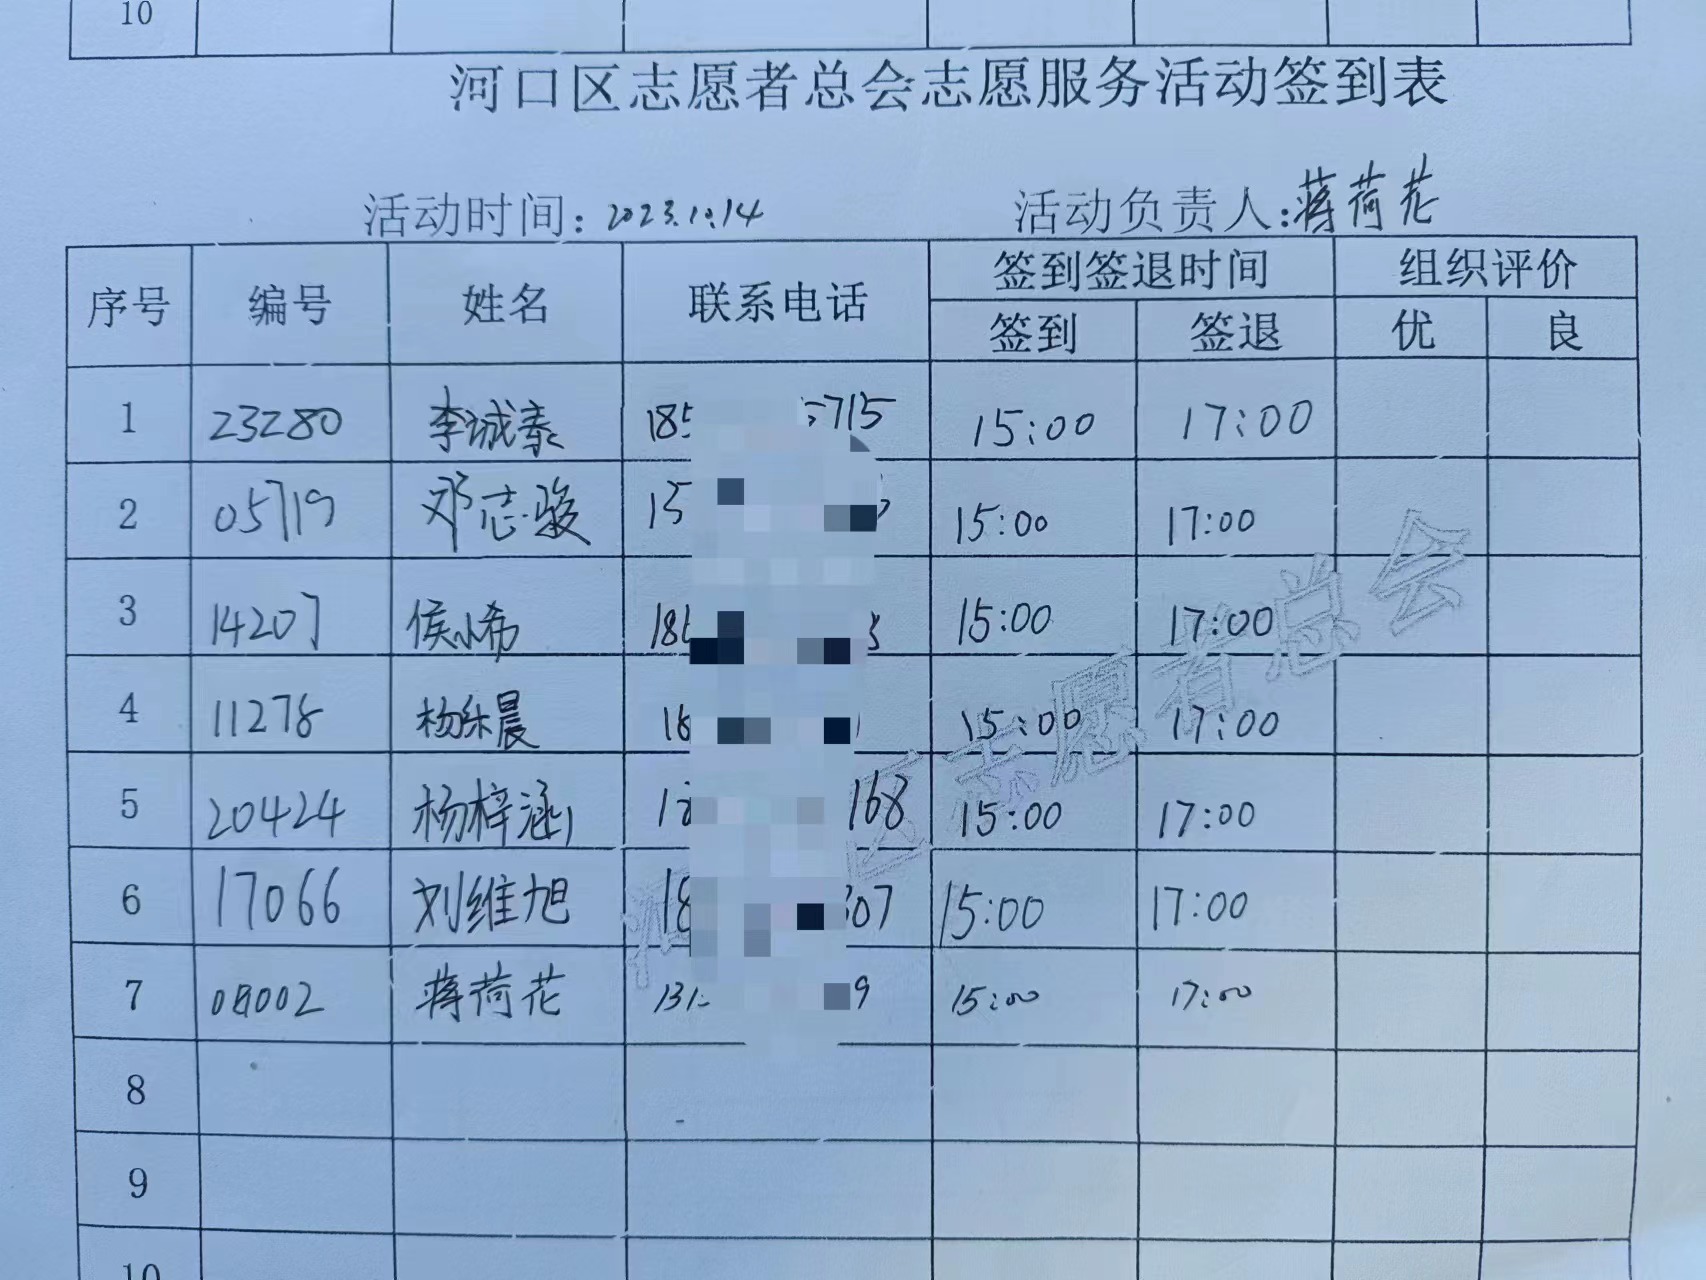 10
河口区志愿者总会志愿服务活动签到表
活动时间: 2023.10.14 活动负责人: 蒋荷花
序号 编号 姓名 联系电话 签到签退时间 组织评价
签到 签退 优 良
1 23280 李诚泰 185 5715 15:00 17:00
2 05719 邓志骏 15 15:00 17:00
3 14207 侯小希 18 15:00 17:00
4 11278 杨乐晨 18 15:00 17:00
5 20424 杨梓涵 1 168 15:00 17:00
6 17066 刘维旭 18 307 15:00 17:00
7 08002 蒋荷花 131 9 15:00 17:00
8
9
10
区志愿者总会